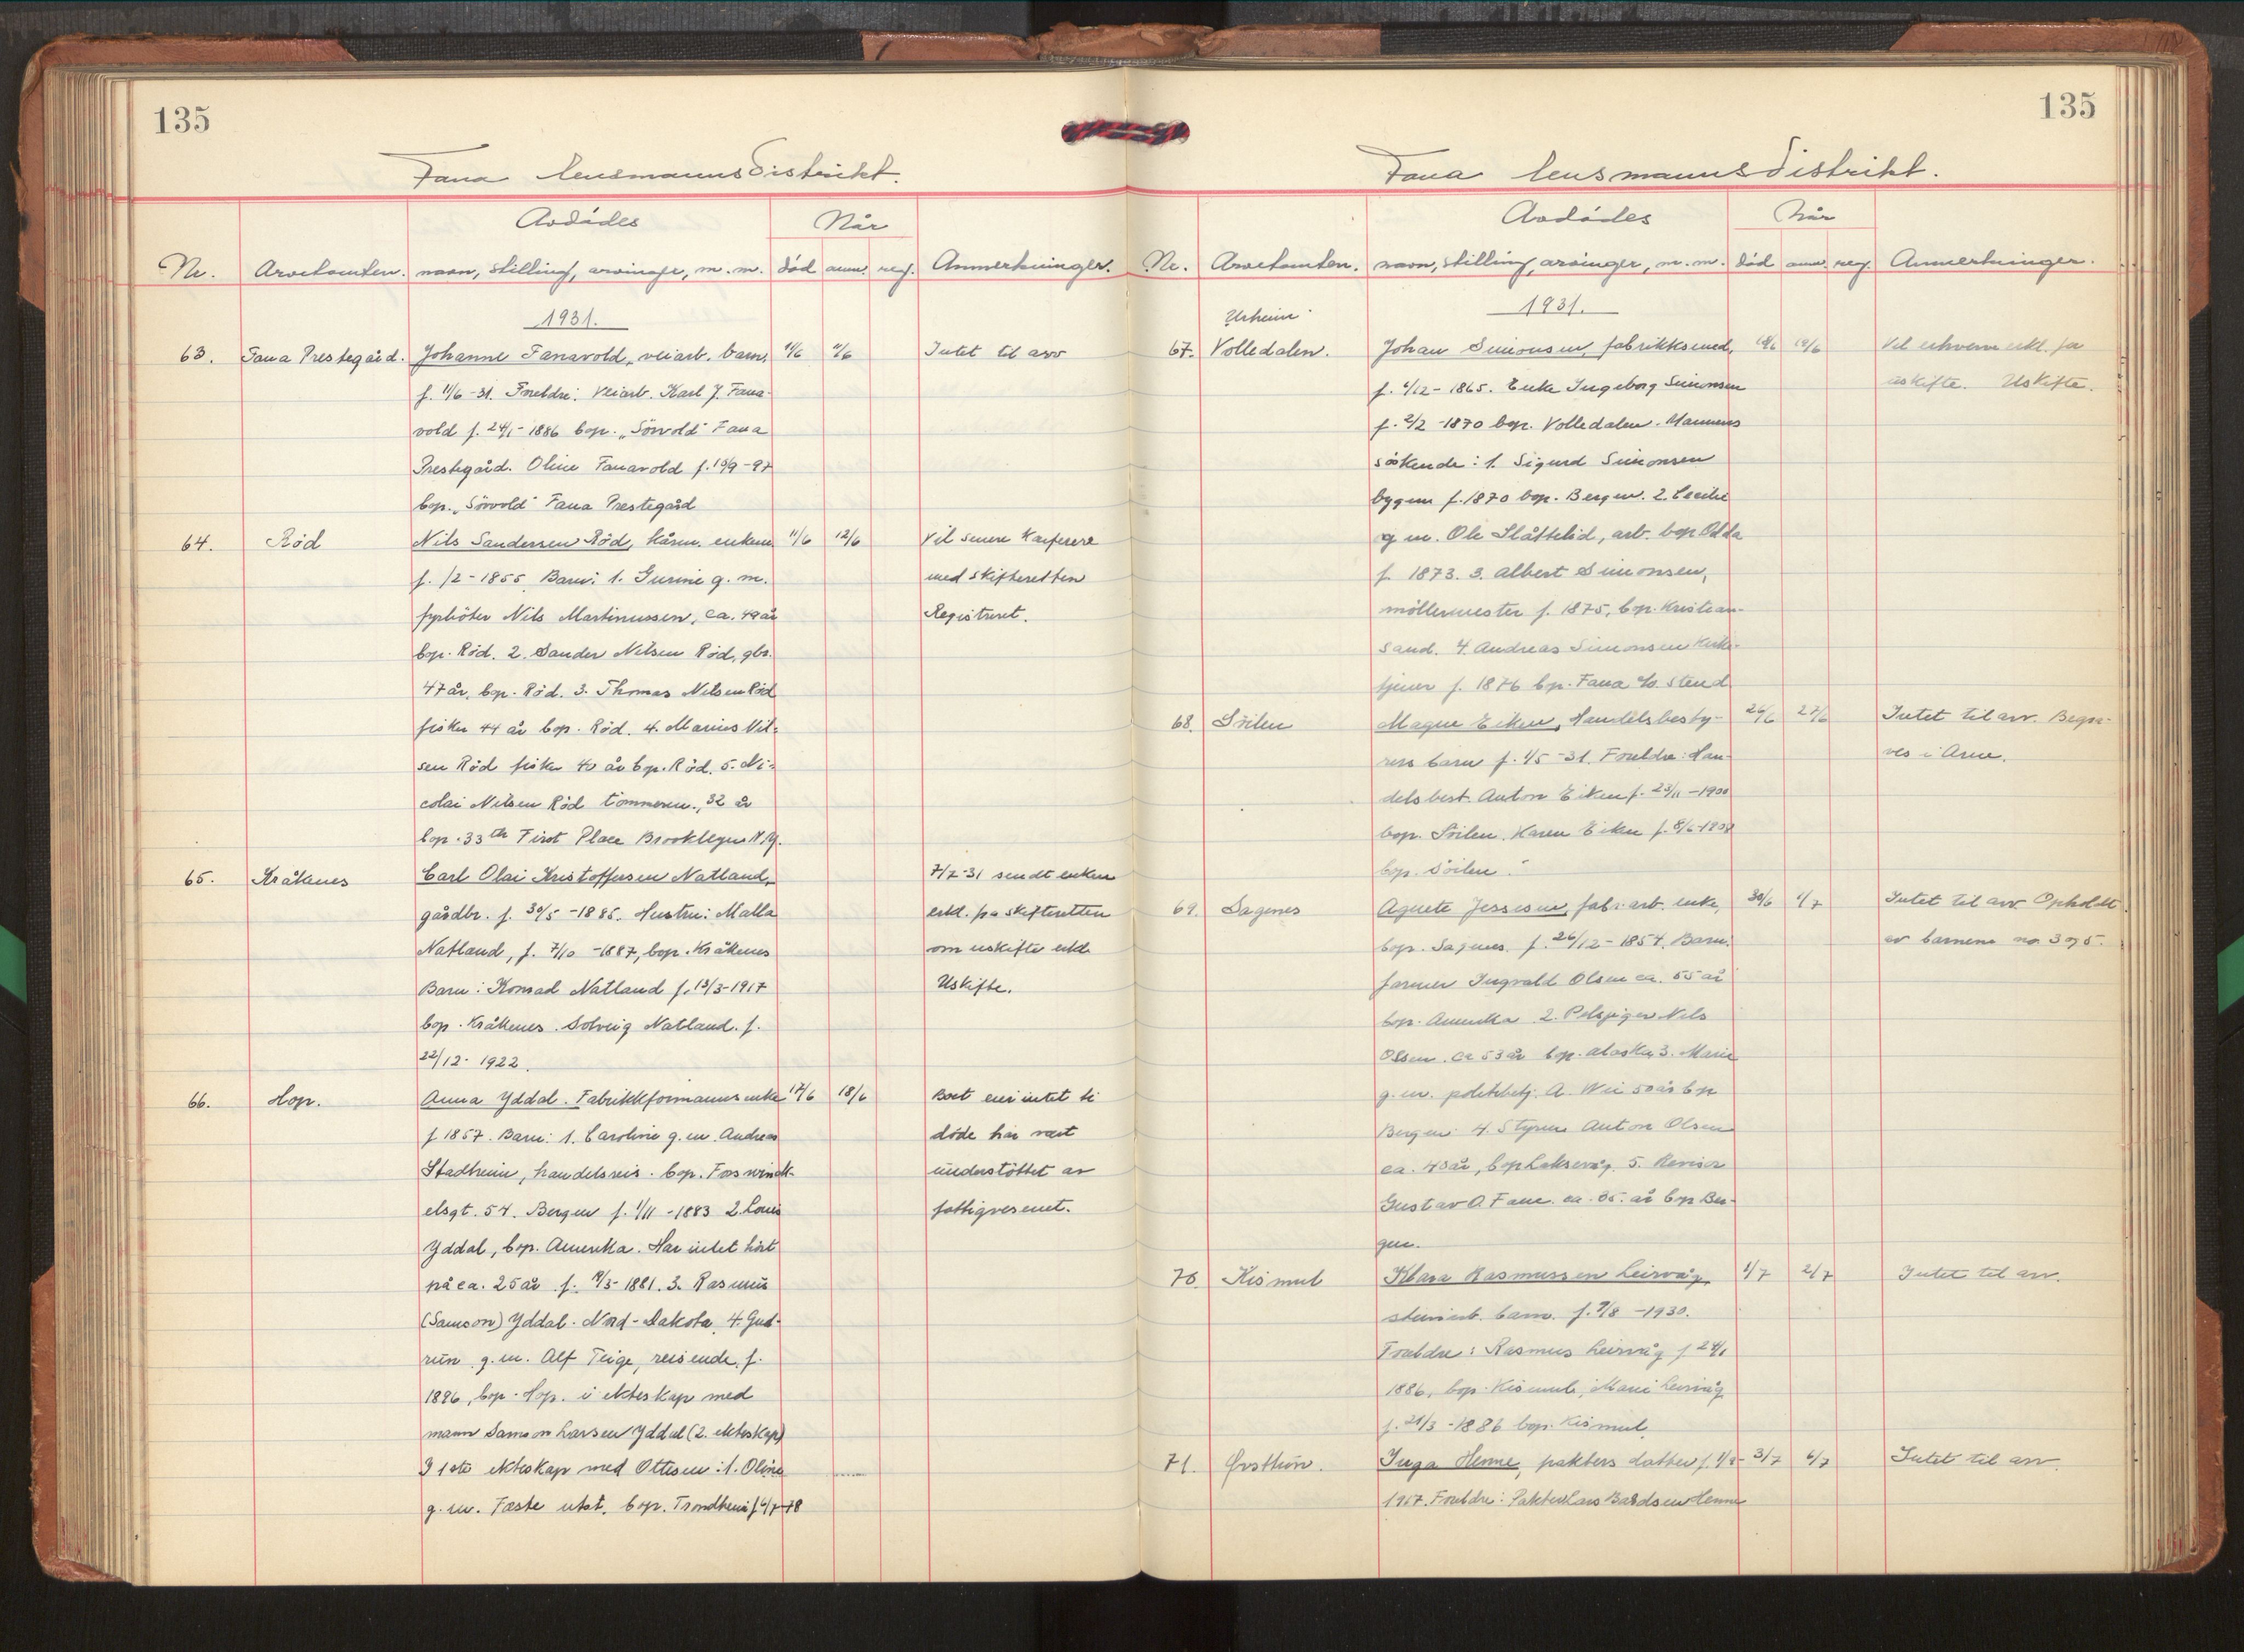 135
Fana lensmannsdistrikt.
Avdödes
Når
Nr. Arvetomten. navn, stilling, arvinger, m. m. död anm. reg. Anmerkninger.
1931.
63. Fana Prestegård. Johanne Fanavold, veiarb. barn, 11/6 11/6 Intet til arv
f. 11/6 -31. Foreldre: Veiarb. Karl J. Fana-
vold f. 24/1 - 1886 bop. "Sörvold" Fana
Prestegård. Oline Fanavold f. 18/9 -97
bop. "Sörvold" Fana Prestegård
64. Röd Nils Sandersen Röd, kårm. enkem. 11/6 12/6 Vil senere konferere
f. /2 - 1855 Barn: 1. Gurine g. m. med skifteretten
fyrböter Nils Martinussen, ca. 49 år Registreret.
bop. Röd. 2. Sander Nilsen Röd, gbr.
47 år, bop. Röd. 3. Thomas Nilsen Röd
fisker 44 år bop. Röd. 4. Marius Nil-
sen Röd fisker 40 år bop. Röd. 5. Ni-
colai Nilsen Röd tömmerm., 32 år
bop. 33th First Place Brooklyn N.Y.
65. Kråkenes Carl Olai Kristoffersen Natland, 7/7-31 sendt enken
gårdbr. f. 30/5 - 1885. Hustru: Malla erkl. fra skifteretten
Natland, f. 7/10 - 1887, bop. Kråkenes om uskifte erkl.
Barn: Konrad Natland f. 13/3 - 1917 Uskifte.
bop. Kråkenes. Solveig Natland. f.
22/12 - 1922.
66. Hop. Anna Yddal. Fabrikkformanns enke 17/6 18/6 Boet eier intet
f 1857. Barn: 1. Caroline g. m. Andreas döde har vært
Stadheim, handelsreis. bop. Fosswinck- understöttet av
elsgt. 54. Bergen f. 1/11 - 1883 2. Louis fattigvesenet.
Yddal, bop. Amerika. Har intet hört
på ca. 25 år f. 19/3 - 1881. 3. Rasmus
(Samson) Yddal. Nord-Dakota. 4. Gud-
run g. m. Alf Teige, reisende, f.
1896, bop. Hop. i ekteskap med
mann Samson Larsen Yddal (2. ekteskap)
I 1ste ekteskap med Ottesen: 1. Oline
g. m. Fæste utst. bop. Trondheim f. 4/7-78
135
Fana lensmannsdistrikt.
Avdödes
Når
Nr. Arvetomten. navn, stilling, arvinger, m. m. död anm. reg. Anmerkninger.
1931.
Urheim
67. Volledalen. Johan Simonsen, fabrikksmed, 18/6 19/6 Vil erhverve erkl. for
f. 6/12 - 1865. Enke Ingeborg Simonsen uskifte. Uskifte.
f. 2/2 - 1870 bop. Volledalen. Mannens
söskende: 1. Sigurd Simonsen
bygm f. 1870 bop. Bergen. 2. Cecilie
g m. Ole Slåttelid, arb. bop. Odda
f 1873. 3. Albert Simonsen,
möllermester f. 1875, bop. Kristian-
sand. 4. Andreas Simonsen kirke-
tjener f. 1876 bop. Fana %. Stend
68. Söilen Magne Eiken, Handelsbesty- 26/6 27/6 Intet til arv. Begra-
rers barn f. 1/5 -31. Foreldre: Han- ves i Arne.
delsbest. Anton Eiken f. 23/11 - 1900
bop. Söilen. Karen Eiken f. 8/6-1908
bop. Söilen.
69. Sagenes Agnete Jessesen, fabr. arb. enke, 30/6 1/7 Intet til arv. Opholdt
bop. Sagenes. f. 26/12 - 1854. Barn: av barnene no. 3 og 5.
farmer Ingvald Olsen ca. 55 år
bop. Amerika 2. Pelsjeger Nils
Olsen. ca 53 år bop. Alaska 3. Marie
g. m. politibetj. A. Wie 50 år bop
Bergen 4. Styrm. Anton Olsen
ca. 43 år, bop Laksevåg. 5. Revisor
Gustav O Fane. ca. 35. år bop Ber-
gen.
70. Kismul Klara Rasmussen Leirvåg, 1/7 2/7 Intet til arv.
stenarb. barn. f. 9/8 - 1930.
Foreldre: Rasmus Leirvåg f 24/1
1886, bop. Kismul, Marie Leirvåg
f. 21/3 - 1886 bop. Kismul.
71. Övsttun. Inga Henne, pakters datter f. 1/2 - 3/7 6/7 Intet til arv.
1917. Foreldre: Pakter Lars Bårdsen Henne